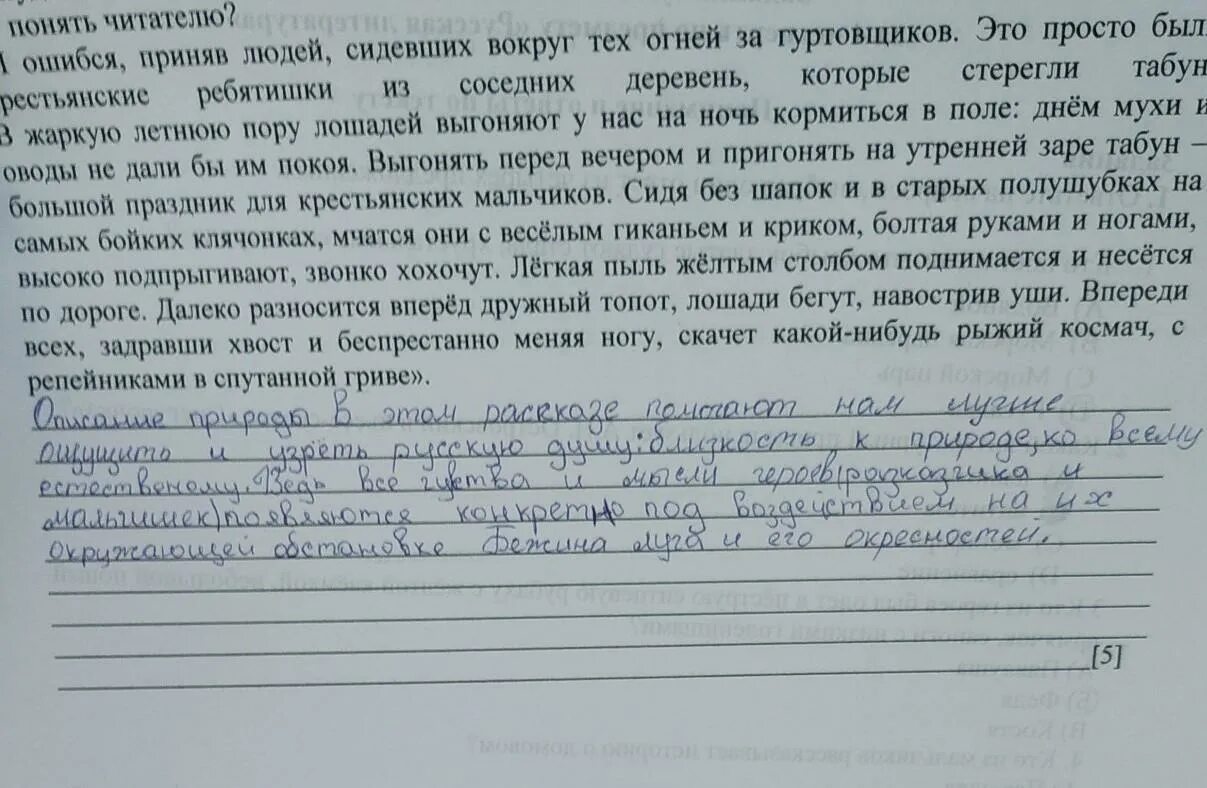 понять читателю?
ошибся, приняв людей, сидевших вокруг тех огней за гуртовщиков. Это просто был
рестьянские ребятишки из соседних деревень, которые стерегли табун
В жаркую летнюю пору лошадей выгоняют у нас на ночь кормиться в поле: днём мухи и
оводы не дали бы им покоя. Выгонять перед вечером и пригонять на утренней заре табун –
большой праздник для крестьянских мальчиков. Сидя без шапок и в старых полушубках на
самых бойких клячонках, мчатся они с весёлым гиканьем и криком, болтая руками и ногами,
высоко подпрыгивают, звонко хохочут. Лёгкая пыль жёлтым столбом поднимается и несётся
по дороге. Далеко разносится вперёд дружный топот, лошади бегут, навострив уши. Впереди
всех, задравши хвост и беспрестанно меняя ногу, скачет какой-нибудь рыжий космач, с
репейниками в спутанной гриве».
Описание природы в этом рассказе помогают нам лучше
ощущить и узреть русскую душу: близкость к природе, ко всему
естественому. Ведь все чувтва и мысли героев(разказчика и
мальчишек) появляются конкретно под воздействием на их
окружающей обстановке Бежина луга и его окресностей.
[5]